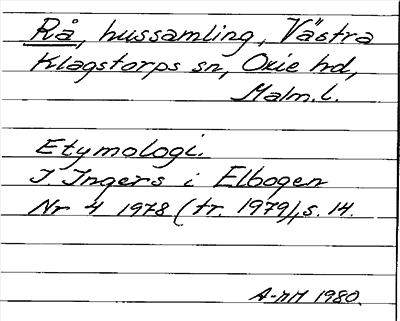 Rå, hussamling, Västra
Klagstorps sn, Oxie hd,
Malm.l.
Etymologi.
I. Ingers i Elbogen
Nr 4 1978 (tr. 1979), s. 14.
A-nM 1980.